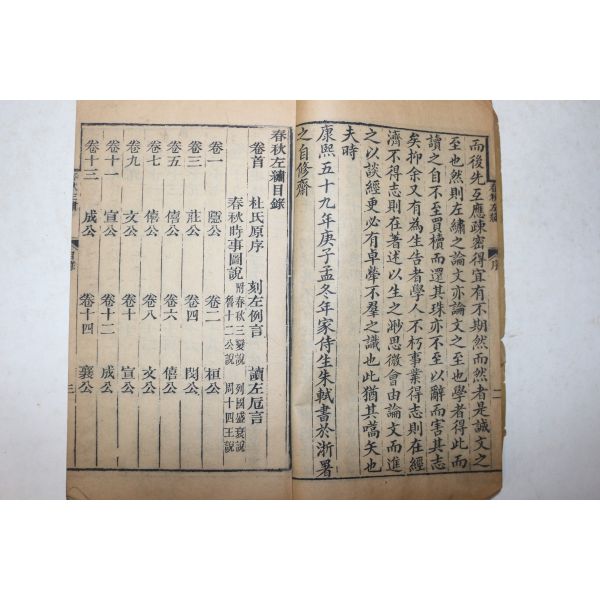 而後先互應疎密得宜有不期然而然者是誠文之
至也然則左繡之論文亦論文之至也學者得此而
讀之自不至買櫝而還其珠亦不至以辭而害其志
矣抑余又有為生告者學人不朽事業得志則在經
濟不得志則在著述以生之渺思微會由論文而進
之以談經更必有卓犖不羣之識也此猶其嚆矢也
夫時
康熙五十九年庚子孟冬年家侍生朱軾書於浙署
之自修齋
春秋左繡
序
二
春秋左繡目錄
卷首 杜氏原序 刻左例言 讀左卮言
春秋時事圖說 附春秋三變說 列國盛衰說 魯十二公說 周十四王說
卷一 隱公 卷二 桓公
卷三 莊公 卷四 閔公
卷五 僖公 卷六 僖公
卷七 僖公 卷八 文公
卷九 文公 卷十 宣公
卷十一 宣公 卷十二 成公
卷十三 成公 卷十四 襄公
目錄
三